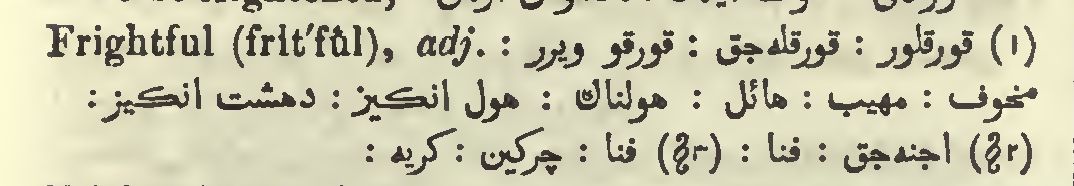 Frightful (frīt′fŭl), adj. : (١) قورقلور : قورقله‌جق : قورقو ویرر :
مخوف : مهیب : هائل : هولناك : هول انکیز : دهشت انکیز :
(§٢) اجنه‌جق : فنا : (§٣) فنا : چرکین : کریه :